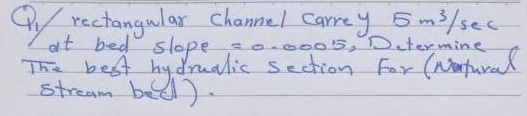 Q1/ rectangular Channel Carrey 5 m³/sec
at bed slope = 0.0005, Determine
The best hydrualic Section For (Natural
Stream bed).